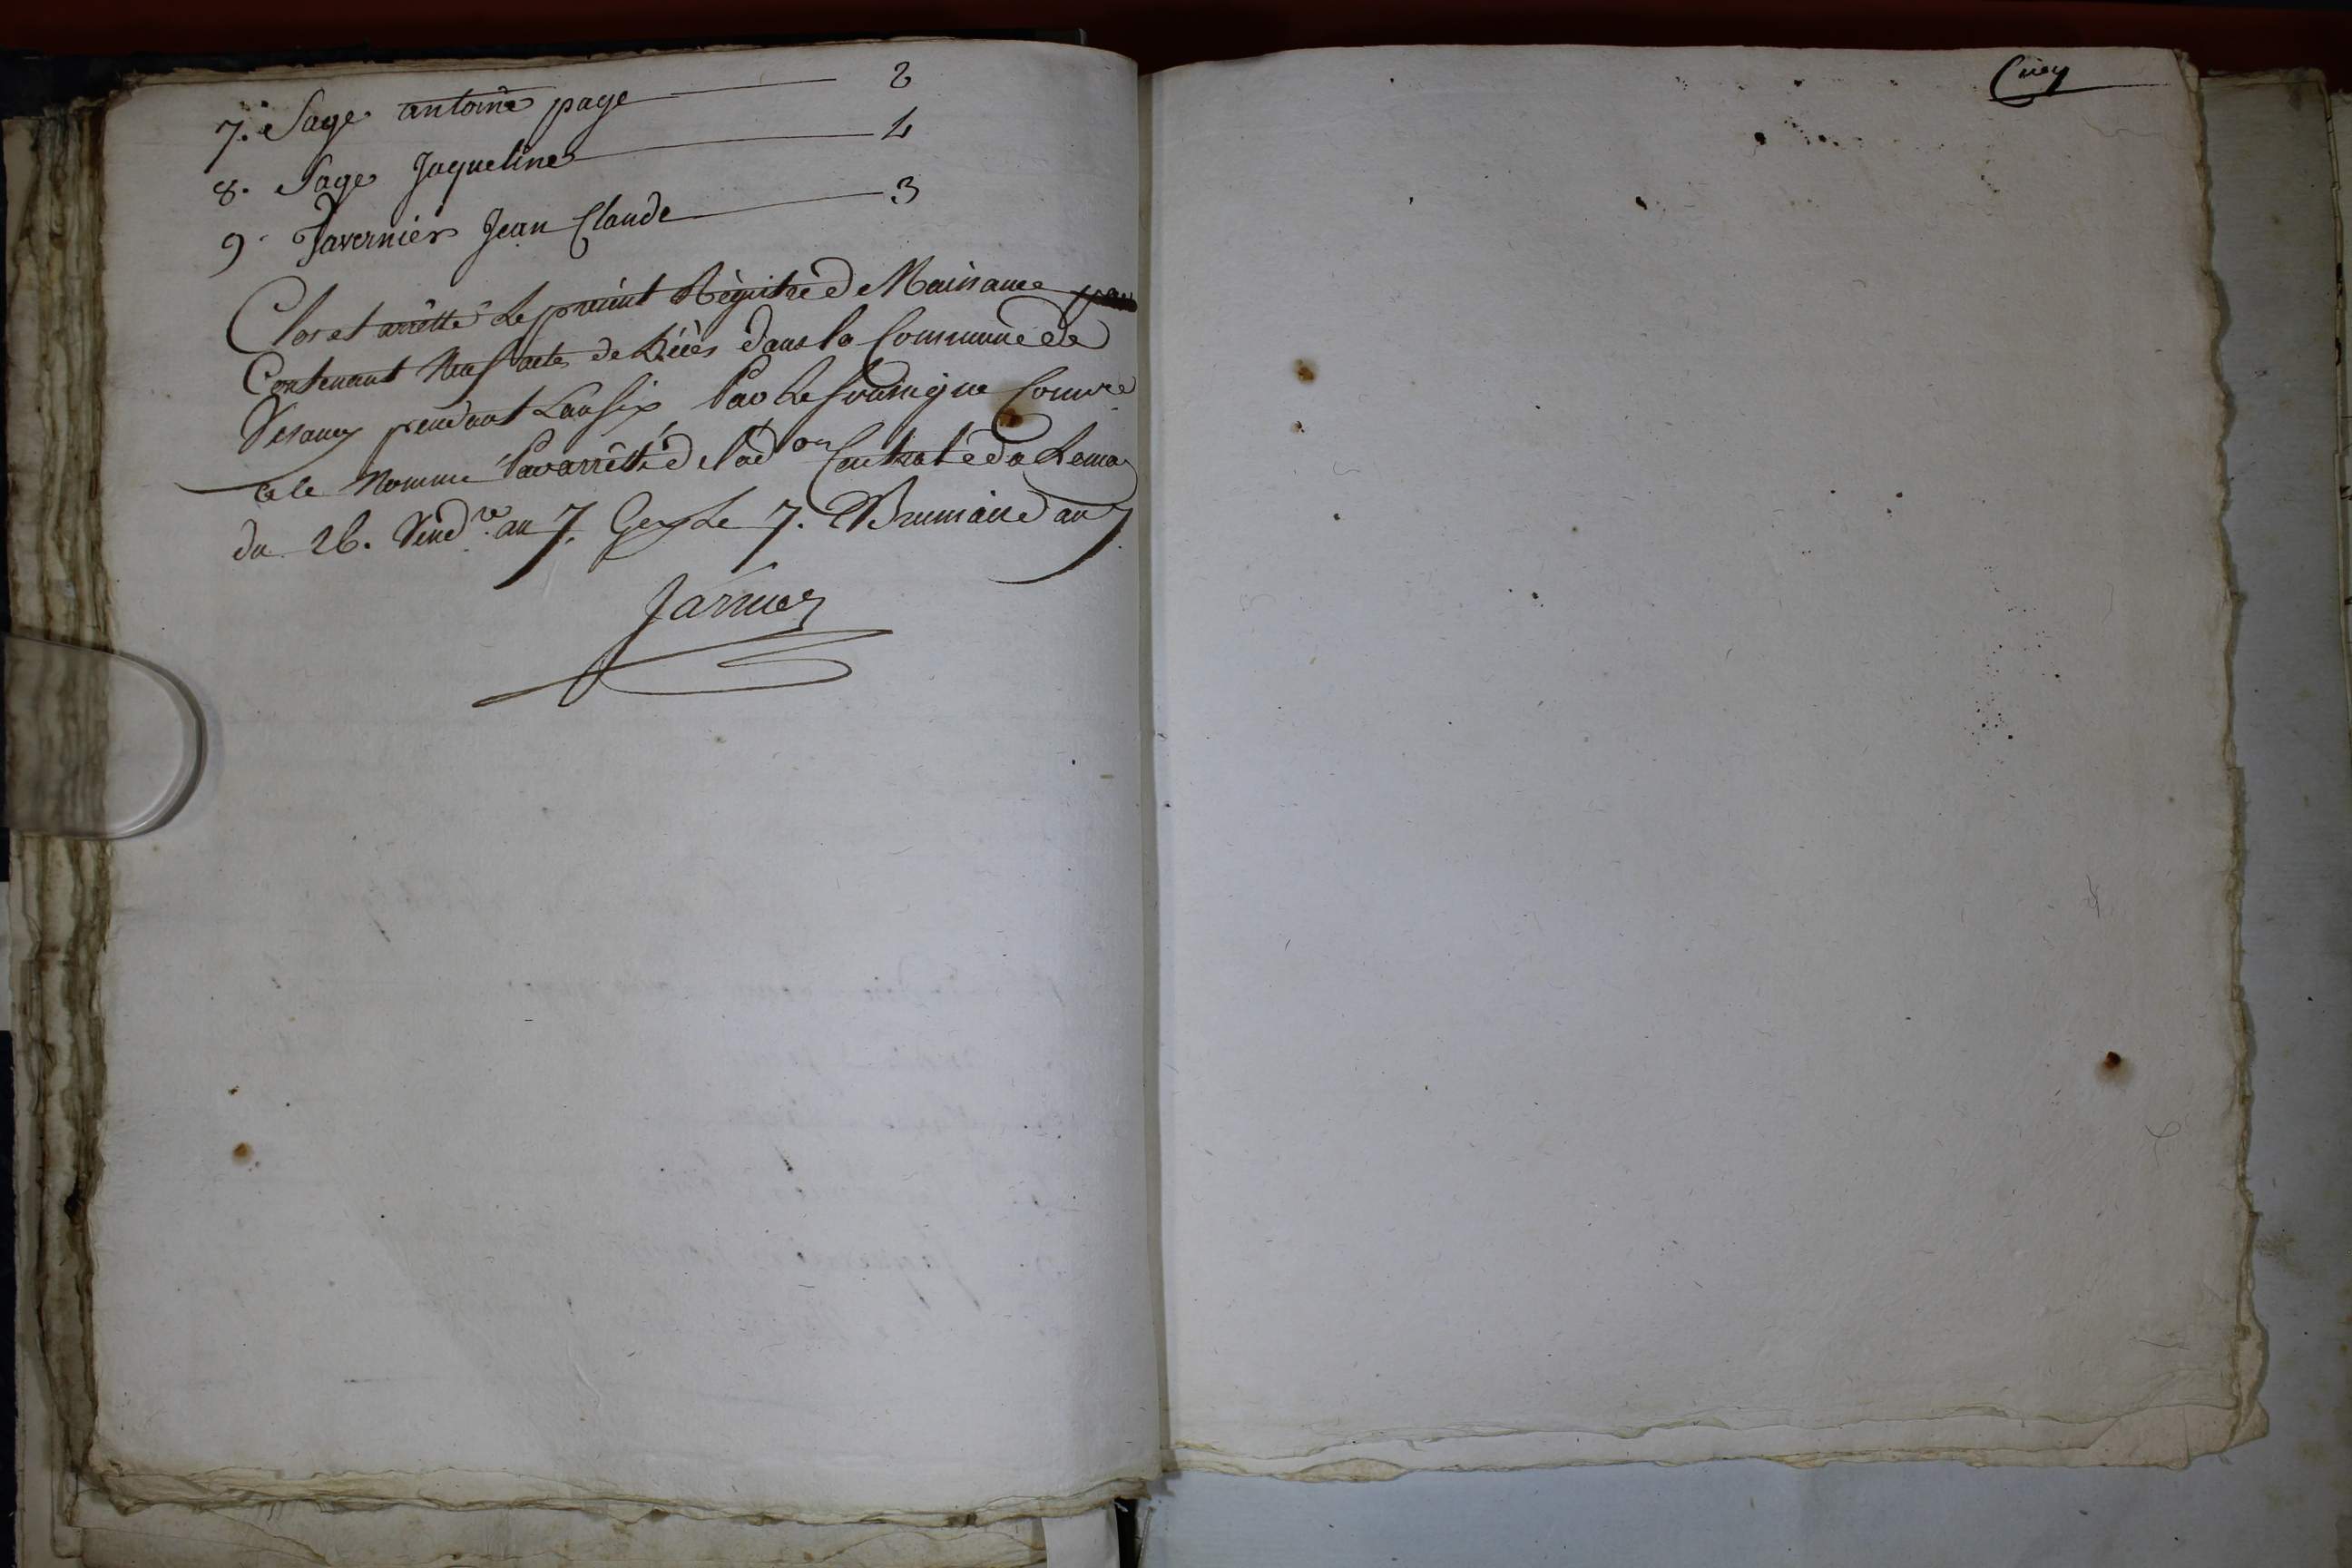 7. Sage antoine page 2
8. Sage Jaqueline 4
9. Tavernier Jean Claude 3
Clos et arrêtté le présent Régistre de Naissance
Contenant Neuf actes de Décès dans la Commune de
Vesancy pendant L'an six, Par Le soussigné Comre
a ce Nommé Par arrêtté de l'adon Centrale du Leman
du 26. Vendre an 7, Gex Le 7. Brumaire an 7.